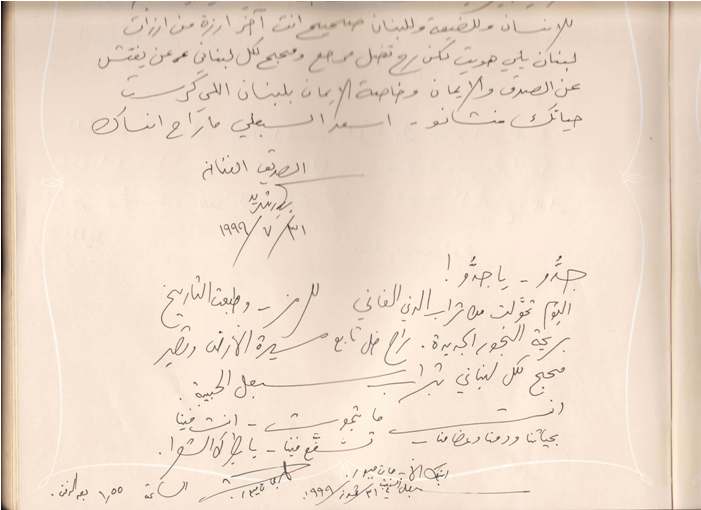 للانسان وللضيعة وللبنان صحيح انت آخر ارزة من ارزات
لبنان يللي هويت لكن رح تضل مرجع ومحجّ لكل لبناني عم يفتش
عن الصدق والايمان وخاصة الايمان بلبنان اللي كرّست
حياتك منشانو - اسعد السبعلي ما راح انساك
الصديق الفنان
٣١/٧/١٩٩٩
جدّو - يا جدّو!
اليوم تحوّلت من تراب الدني الفاني للرمز - وطبعت التاريخ
الجديدة. راح ضل تابع مسيرة الأرض وتصير
محجّ لكل لبناني بتراب سبعل الحبيبة.
انت ما بتموت - انت فينا
بحياتنا ودمنا وعضامنا - تشفّع فينا - يا بطرك الشعرا.
إبنك
سبعل ٣١ تموز ١٩٩٩
الساعة ١,٥٥ بعد الظهر.